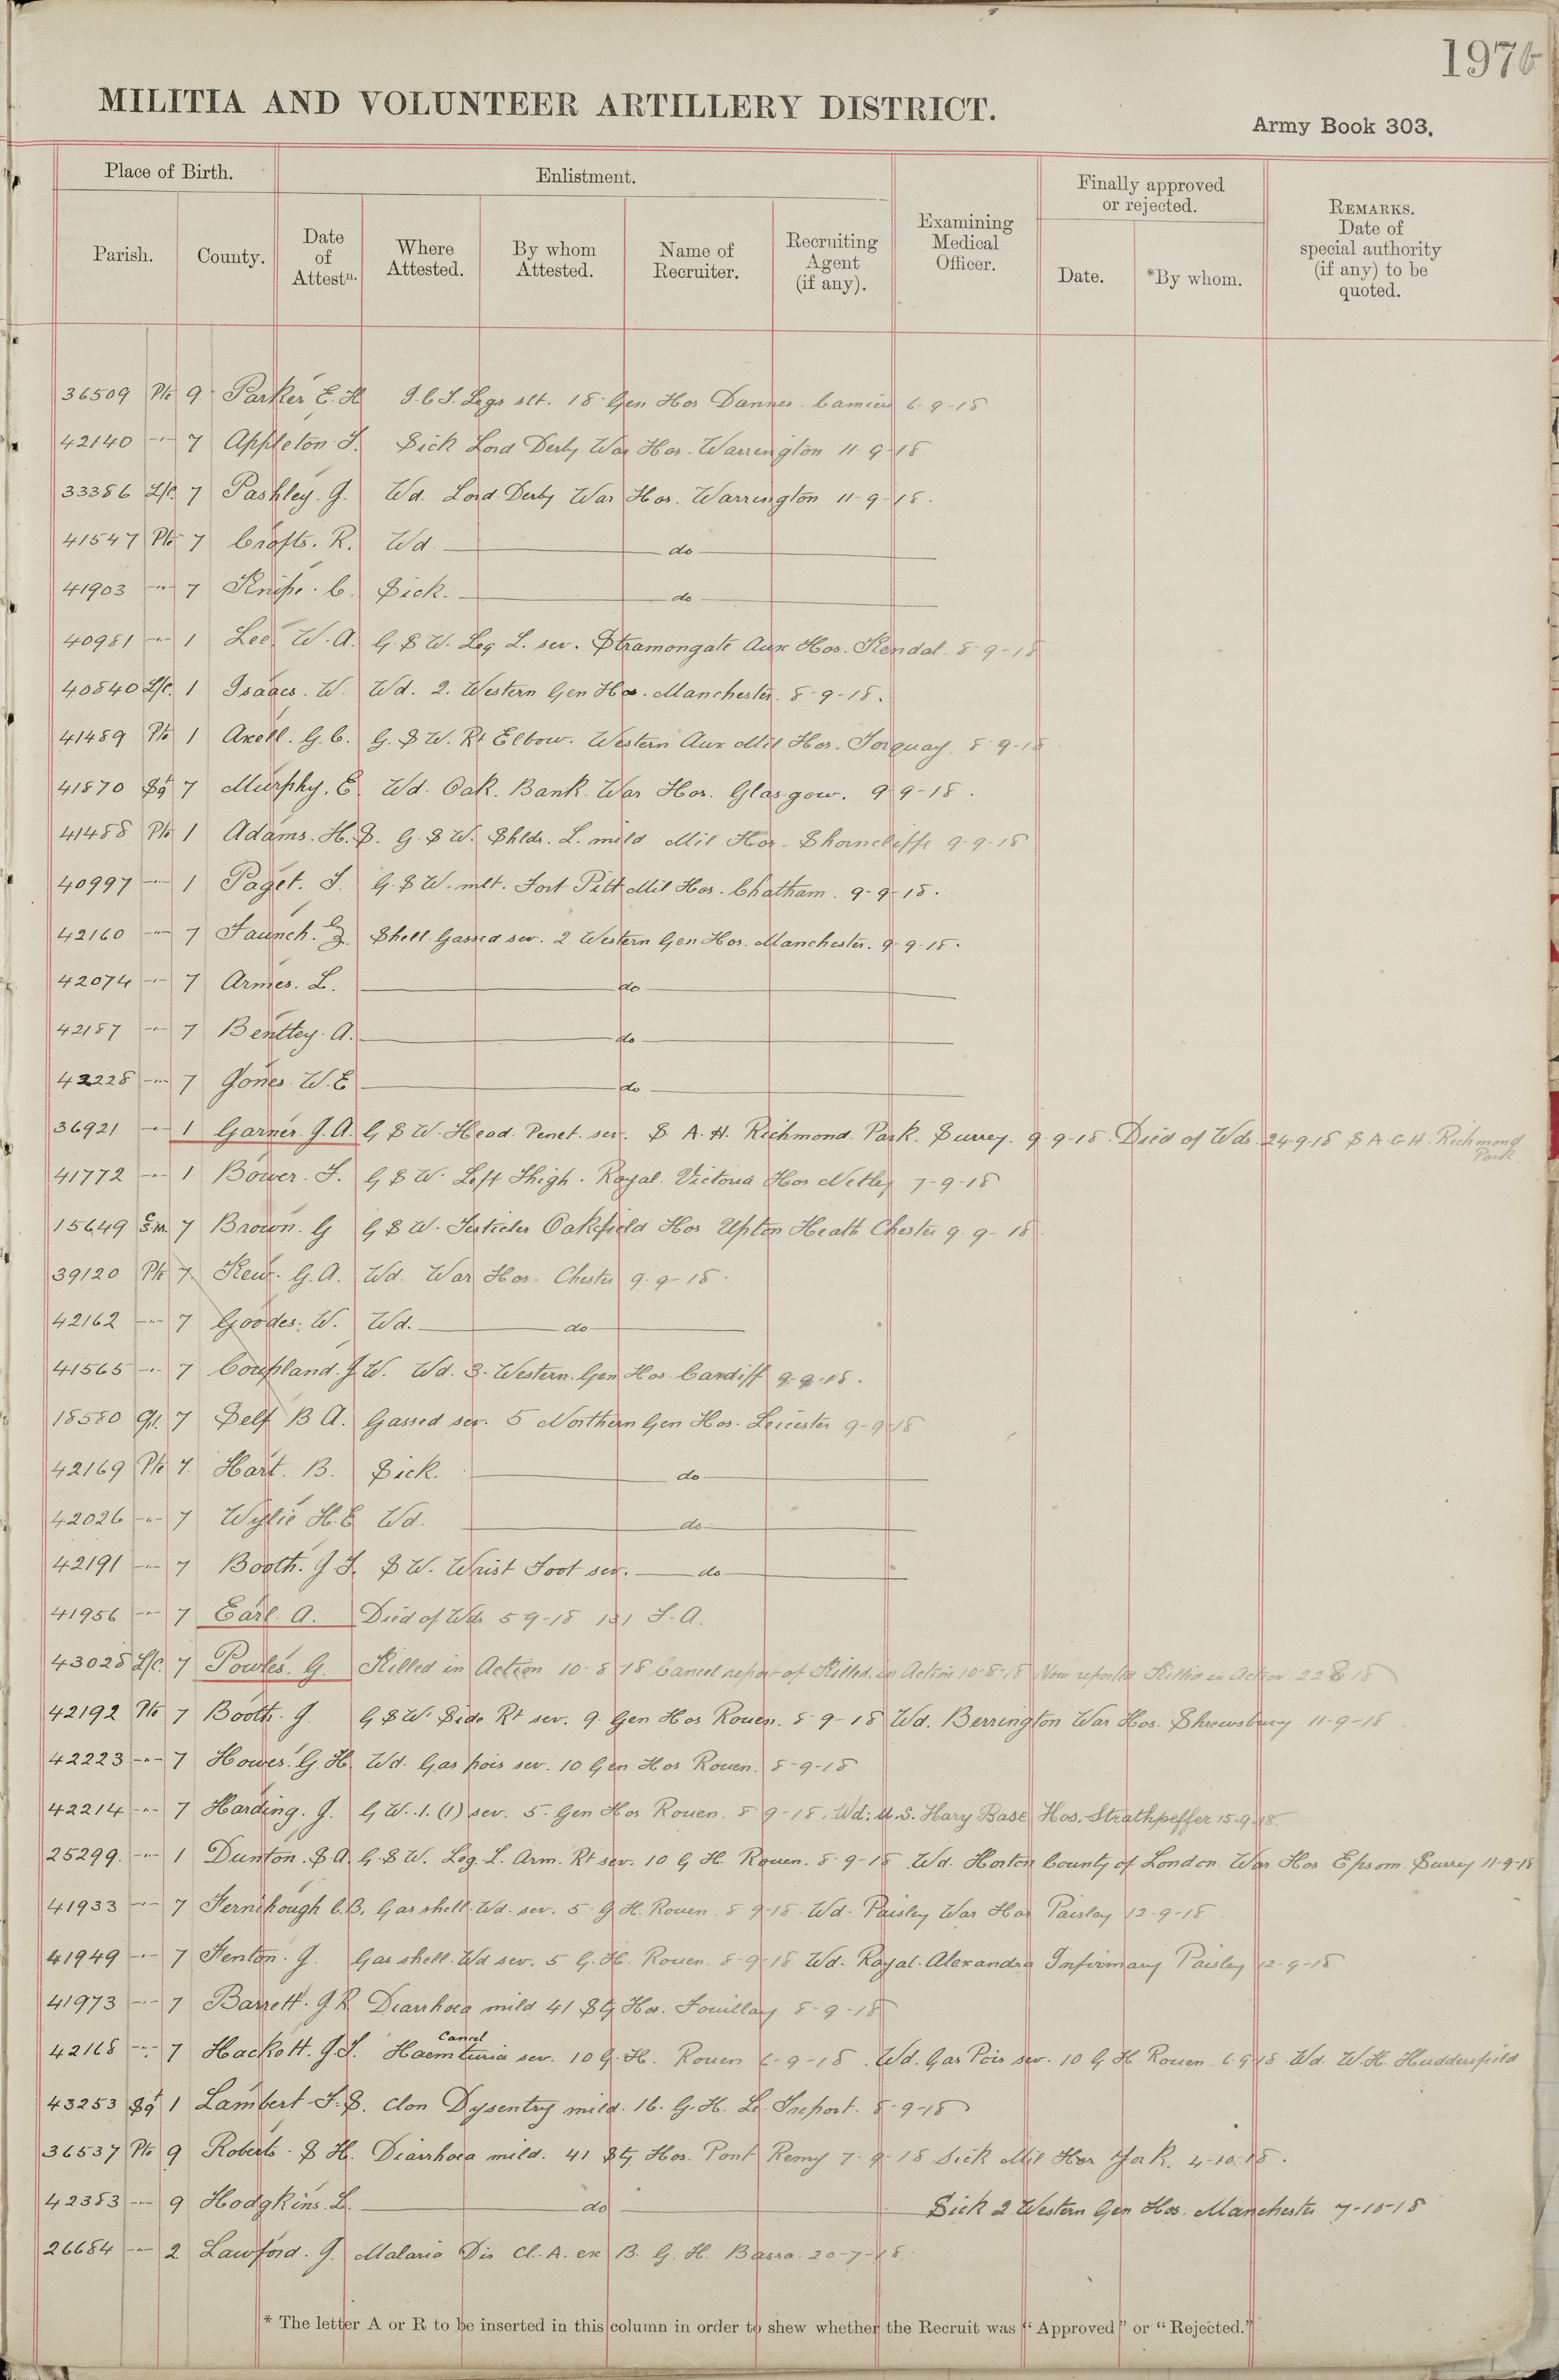 1976
MILITIA AND VOLUNTEER ARTILLERY DISTRICT.
Army Book 303.
Place of Birth.
Enlistment.
Finally approved or rejected.
Parish.
County.
Date of Attestn.
Where Attested.
By whom Attested.
Name of Recruiter.
Recruiting Agent (if any).
Examining Medical Officer.
Date.
*By whom.
REMARKS. Date of special authority (if any) to be quoted.
36509 Pte 9 Parker E. H. Legs slt. 18 Gen Hos Dannes Camiers 6-9-18
42140 -"- 7 Appleton J. Sick Lord Derby War Hos. Warrington 11-9-18
33386 L/C. 7 Pashley. G. Wd. Lord Derby War Hos. Warrington 11-9-18.
41547 Pte 7 Crofts. R. Wd. do
41903 -"- 7 Knipe. C. Sick. do
40981 -"- 1 Lee. W. A. G.S.W. Leg L. sev. Stramongate Aux Hos. Kendal. 8-9-18
40840 L/C. 1 Isaacs. W. Wd. 2. Western Gen Hos. Manchester. 8-9-18.
41489 Pte 1 Axell. G. C. G.S.W. Rt Elbow. Western Aux Mil Hos. Torquay. 8-9-18
41870 Sgt 7 Murphy. E. Wd. Oak. Bank. War Hos. Glasgow. 9-9-18.
41488 Pte 1 Adams. H. S. G.S.W. Shldr. L. mild Mil Hos. Shorncliffe 9-9-18
40997 -"- 1 Paget. J. G.S.W. mlt. Fort Pitt Mil Hos. Chatham. 9-9-18.
42160 -"- 7 Faunch. Shell Gassed sev. 2. Western Gen Hos. Manchester. 9-9-18.
42074 -"- 7 Armes. L. do
42187 -"- 7 Bentley. A. do
42228 -"- 7 Jones. W. E. do
36921 -"- 1 Garner. J. A. G.S.W. Head. Penet. sev. S. A. H. Richmond. Park. Surrey. 9-9-18. Died of Wds 24-9-18 S A G H. Richmond Park.
41772 -"- 1 Bower. J. G.S.W. Left Thigh. Royal. Victoria Hos Netley 7-9-18
15649 S.M. 7 Brown. G G.S.W. Testicles Oakfield Hos Upton Heath Chester 9-9-18.
39120 Pte 7. Kew. G. A. Wd. War Hos. Chester 9-9-18.
42162 -"- 7 Goodes. W. Wd. do
41565 -"- 7 Coupland. J. W. Wd. 3. Western. Gen Hos. Cardiff 9-9-18.
18580 7 Self B A. Gassed sev. 5 Northern Gen Hos. Leicester 9-9-18
42169 Pte 7. Hart. B. Sick. do
42026 -"- 7 Wylie H. E. Wd. do
42191 -"- 7 Booth. J. J. S.W. Wrist Foot sev. do
41956 -"- 7 Earl. A. Died of Wds 5-9-18 131 F. A.
43028 L/C. 7 Powles. G. Killed in Action 10-8-18 Cancel report of Killed. in Action 10-8-18 Now reported Killed in Action 22-8-18
42192 Pte 7 Booth. J. G.S.W. Side Rt sev. 9. Gen Hos Rouen. 8-9-18 Wd. Berrington War Hos. Shrewsbury 11-9-18.
42223 -"- 7 Howes. G. H. Wd. Gas pois sev. 10 Gen Hos Rouen. 8-9-18
42214 -"- 7 Harding. J. G.W. 1. (1) sev. 5. Gen Hos Rouen. 8-9-18. Wd: U.S. Navy Base Hos. Strathpeffer 15-9-18.
25299. -"- 1 Dunton. S. A. G.S.W. Leg. L. Arm. Rt sev. 10 G H. Rouen. 8-9-18 Wd. Horton County of London. War Hos Epsom. Surrey 11-9-18
41933 -"- 7 Fernihough C. B. Gas shell. Wd. sev. 5 G H. Rouen. 8-9-18. Wd. Paisley War Hos Paisley 12-9-18
41949 -"- 7 Fenton. J. Gas shell. Wd sev. 5 G. H. Rouen. 8-9-18 Wd. Royal. Alexandra Infirmary Paisley 12-9-18
41973 -"- 7 Barrett. J R Diarrhoea mild 41 Stg Hos. Fouilloy 8-9-18
42168 -"- 7 Hackett. J. J. Haemturia sev. 10 G. H. Rouen 6-9-18. Wd. Gas Pois sev. 10 G H Rouen. 6-9-18 Wd. W. H. Huddersfield
Cancel
43253 Sgt 1 Lambert. J. S. Non Dysentry mild. 16. G. H. Le Treport. 8-9-18
36537 Pte 9 Roberts. S H. Diarrhoea mild. 41 Stg Hos. Pont Remy 7-9-18 Sick Mil Hos York. 4-10-18.
42383 -"- 9 Hodgkins. L. do Sick 2. Western Gen Hos. Manchester 7-10-18
26684 -"- 2 Lawford. J. Malaria Dis Cl. A. ex B. G. H. Basra. 20-7-18.
* The letter A or R to be inserted in this column in order to shew whether the Recruit was "Approved" or "Rejected."